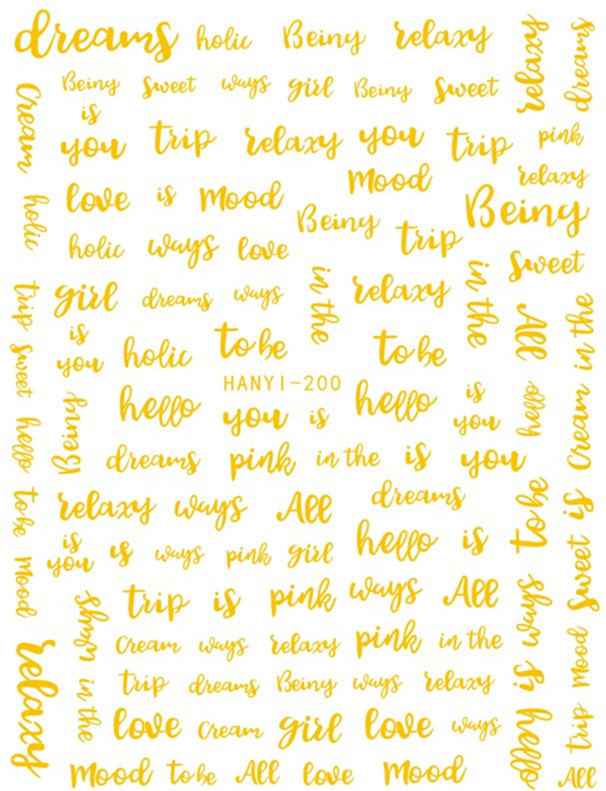 dreams holic Being relaxy
relaxy
dreams
Being Sweet ways girl Being Sweet
Cream
is
you trip relaxy you trip pink
Mood relaxy
love is Mood Being Being
holic
holic ways love trip
Sweet
girl dreams ways in the relaxy in the
All
Cream in the
trip
is
you holic to be to be
sweet
HANYI-200
hello you is hello is
you
hello
hello
Being
dreams pink in the is you
relaxy ways All dreams
to be
to be
is
you is ways pink girl hello is
Sweet is
Mood
trip is pink ways All
ways
ways
Cream ways relaxy pink in the
Mood
relaxy
trip dreams Being ways relaxy
in the
is
love Cream girl love ways
hello
trip
Mood to be All love Mood All